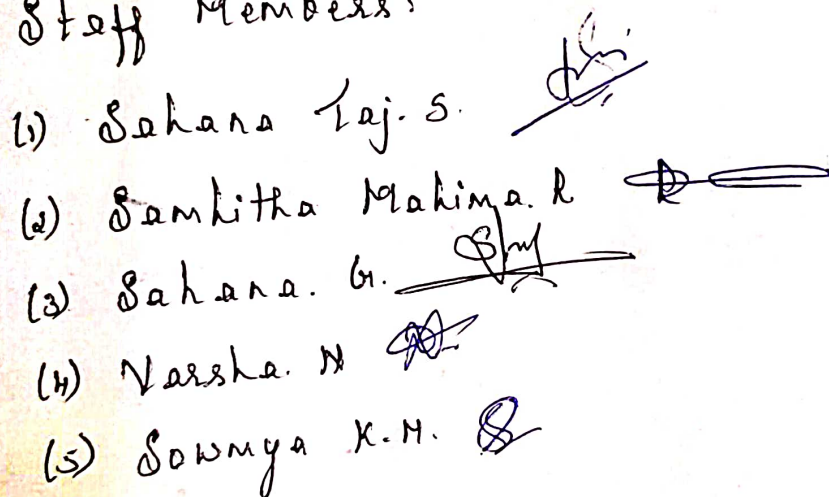 Staff Members:
(1) Sahana Taj. S.
(2) Samhitha Mahima. R
(3) Sahana. G.
(4) Varsha. N
(5) Sowmya K.M.